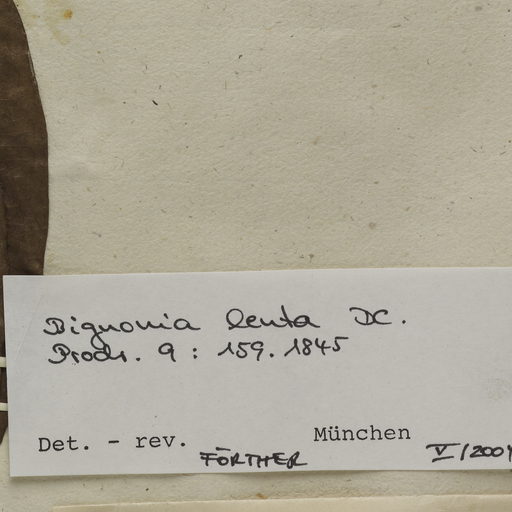 Bignonia lenta DC.
Prodr. 9 : 159. 1845
Det. - rev. FÖRTHER München V/2001